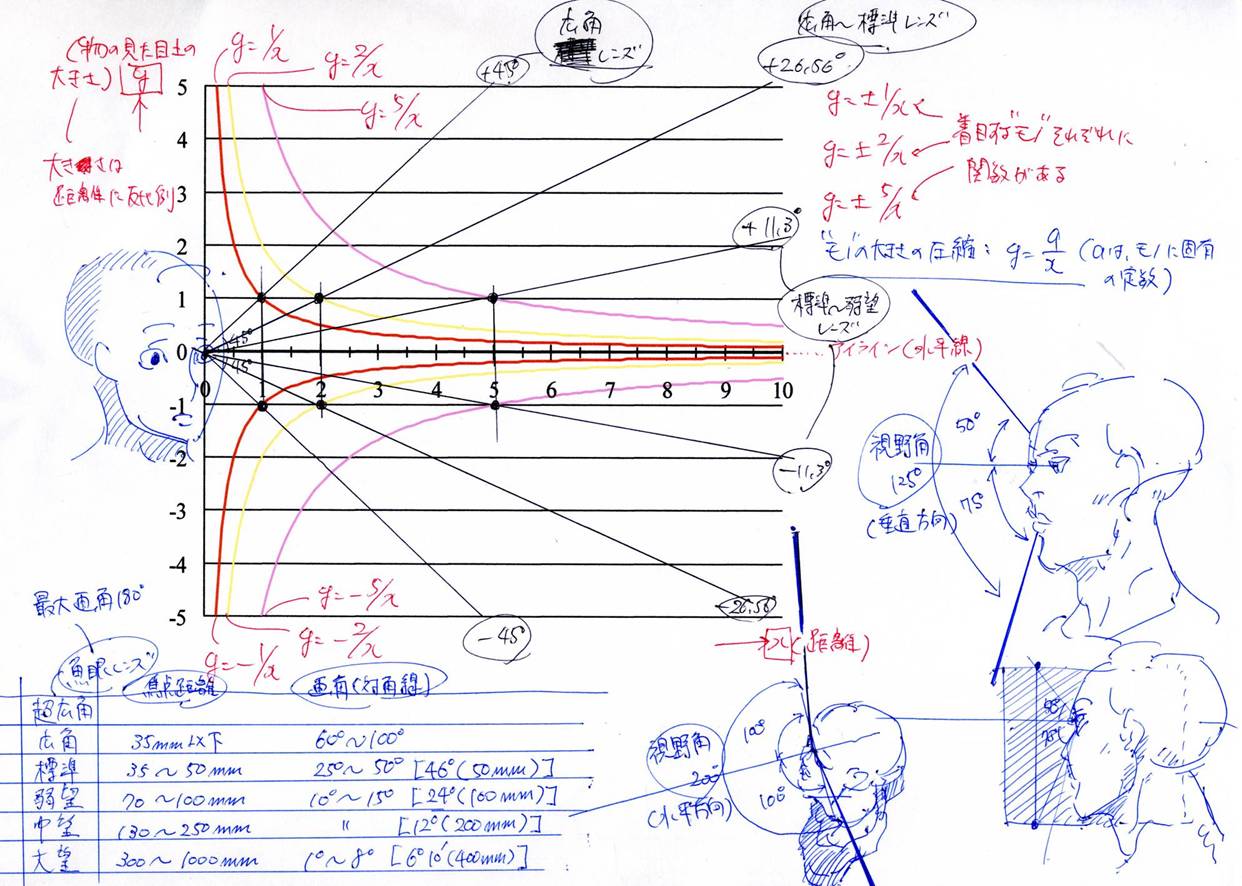 (物の見た目上の
大きさ) y
大きさは
距離に反比例
y=1/x
y=2/x
y=5/x
+45°
広角
レンズ
広角〜標準レンズ
+26.56°
y=±1/x
y=±2/x
y=±5/x
着目する"モノ"それぞれに
関数がある
+11.3°
"モノ"の大きさの圧縮: y=a/x (aは、モノに固有
の定数)
標準〜弱望
レンズ
アイライン(水平線)
5
4
3
2
1
0
-1
-2
-3
-4
-5
0 1 2 3 4 5 6 7 8 9 10
+45°
-45°
-11.3°
-26.56°
-45°
y=-5/x
y=-2/x
y=-1/x
→x(距離)
視野角
125°
(垂直方向)
50°
75°
視野角
200°
(水平方向)
100°
100°
最大画角180°
魚眼レンズ
焦点距離 画角(対角線)
超広角
広角 35mm以下 60°〜100°
標準 35〜50mm 25°〜50° [46°(50mm)]
弱望 70〜100mm 10°〜15° [24°(100mm)]
中望 130〜250mm 〃 [12°(200mm)]
大望 300〜1000mm 1°〜8° [6°10'(400mm)]